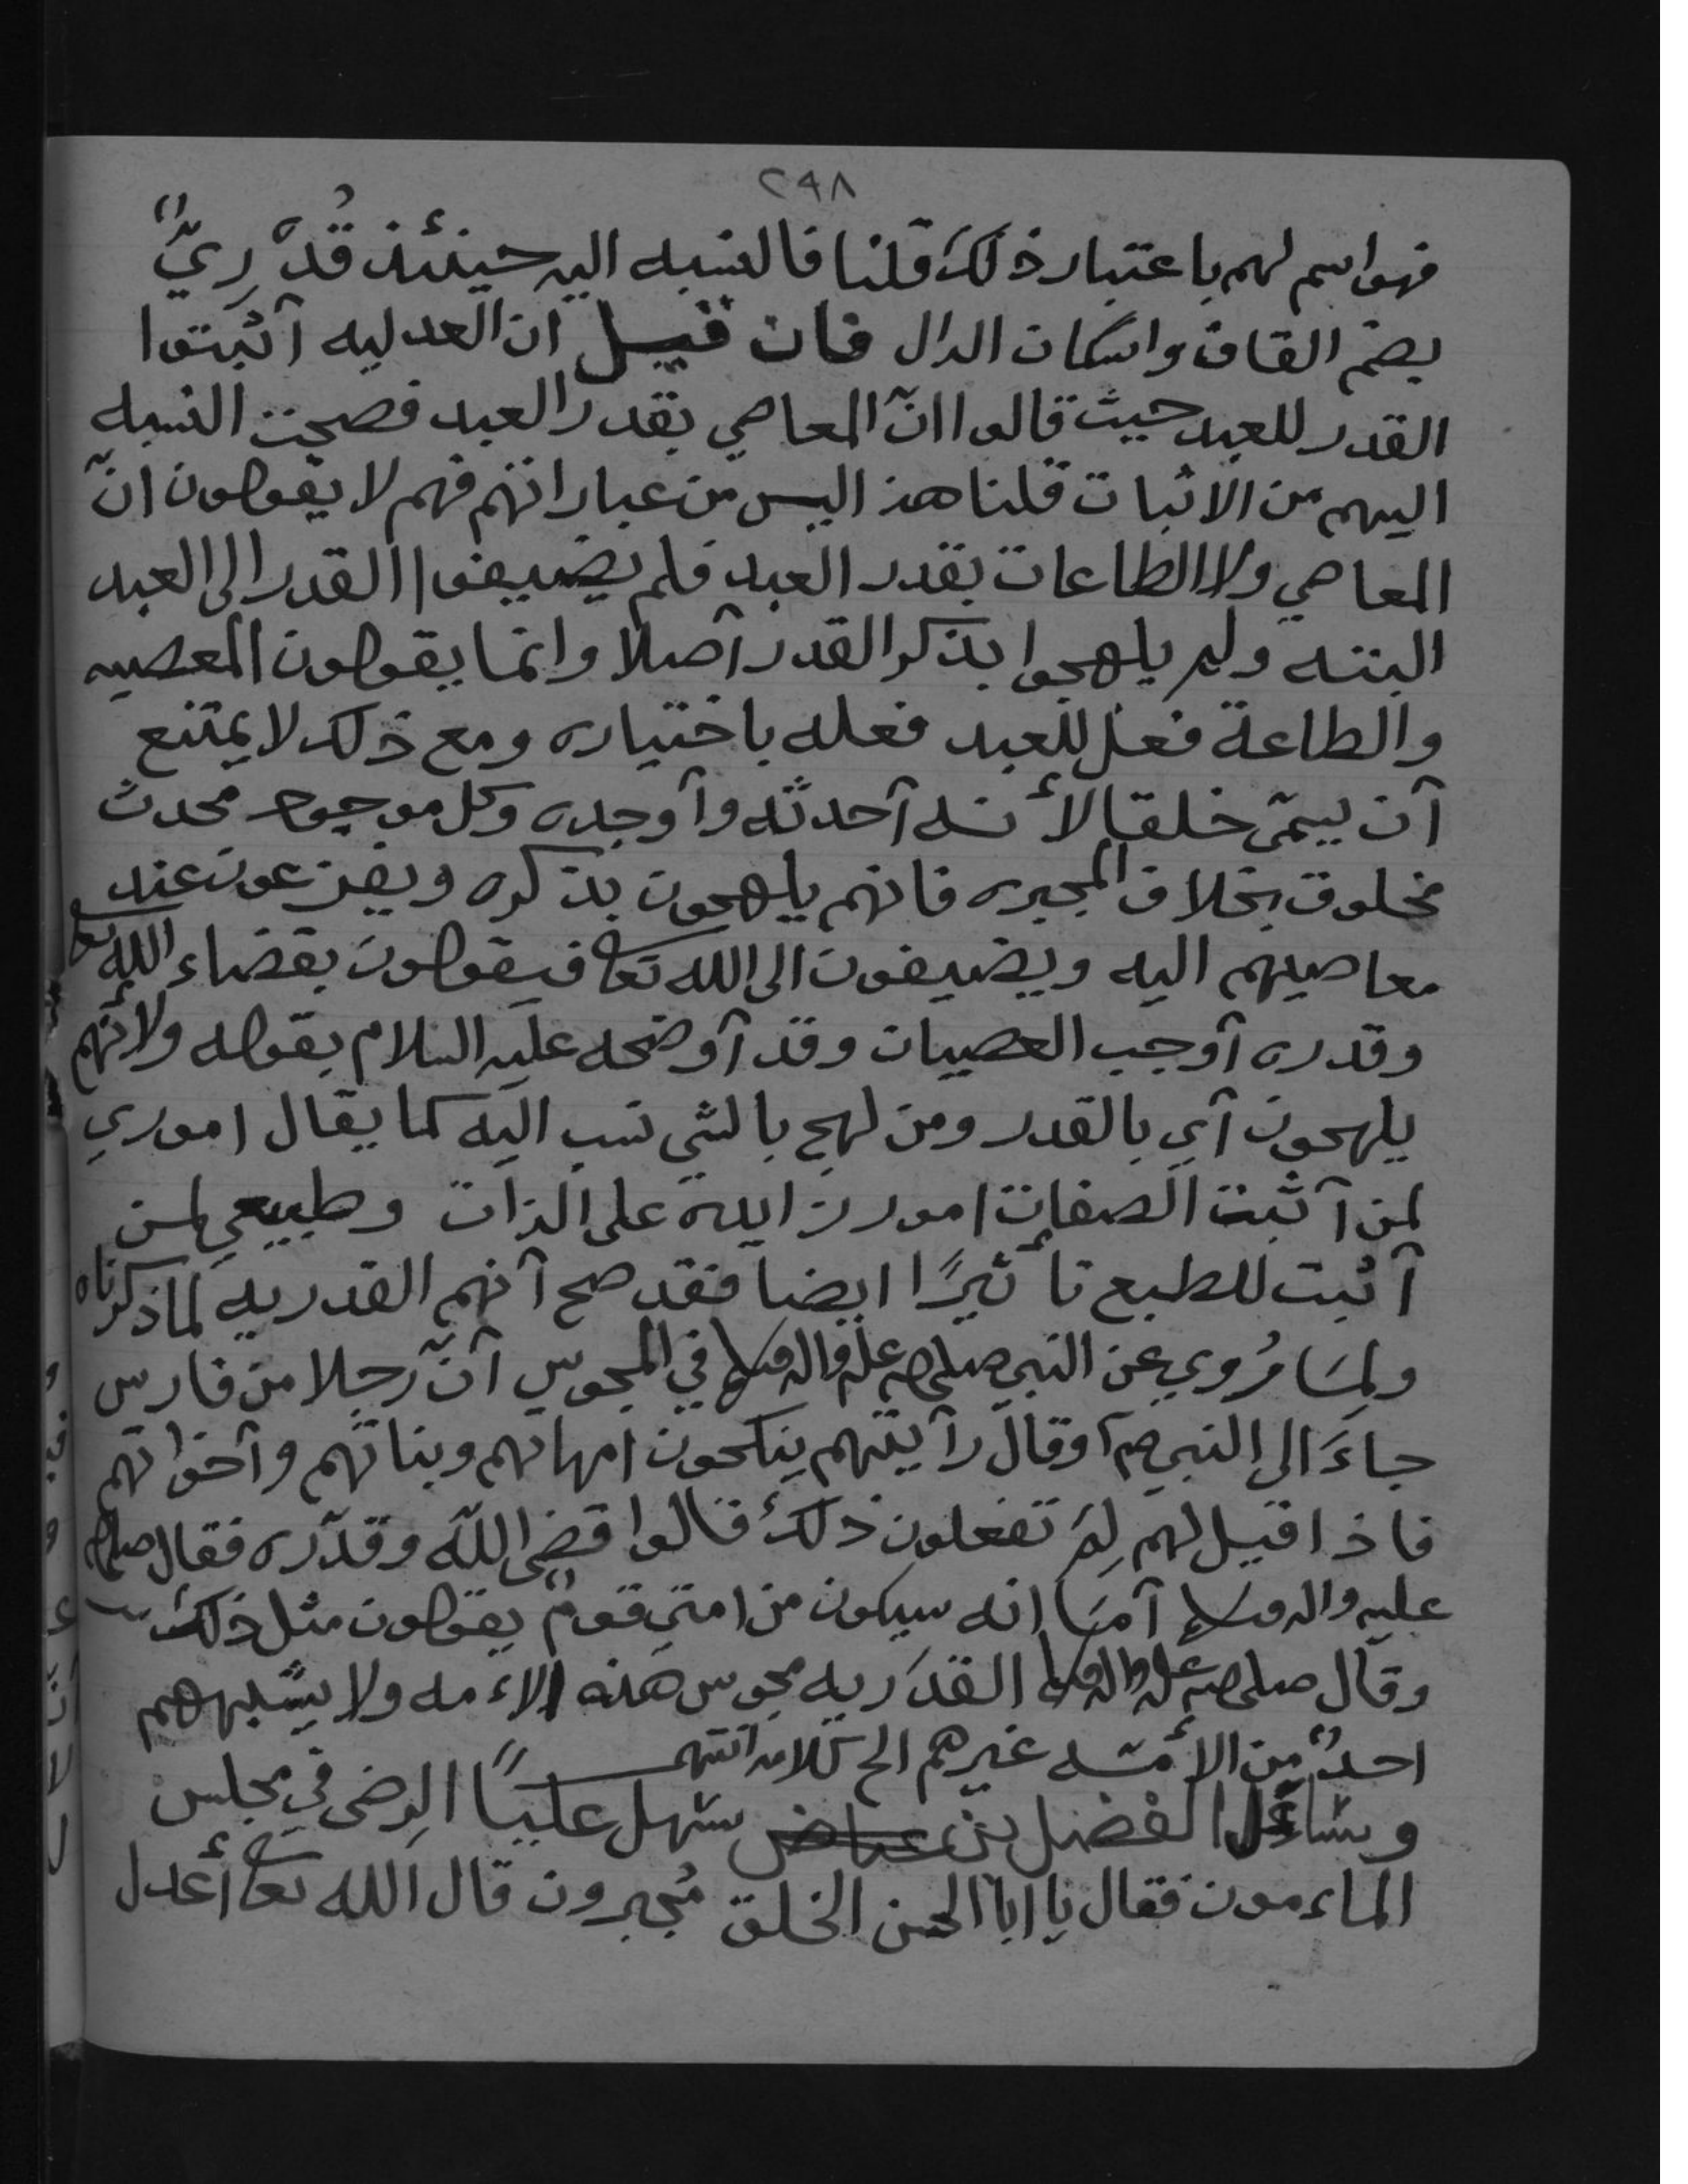 ٢٩٨
فهو اسم لهم باعتبار ذلك قلنا فالنسبه اليه حينئذ قُدْرِيٌّ
بضم القاف واسكان الدال فان قيل ان العدليه آثبتوا
القدر للعبد حيث قالوا انّ المعاصي بقدر العبد فصحت النسبه
اليهم من الاثبات قلنا هذا ليس من عباراتهم فهم لا يقولون انّ
المعاصي ولا الطاعات بقدر العبد فلم يضيفوا القدر الى العبد
البتته ولم يلهجوا بذكر القدر آصلا وانما يقولون المعصيه
والطاعة فعل للعبد فعله باختياره ومع ذلك لا يمتنع
آن يسمّى خلقا لأنه آحدثه وآوجده وكل موجود محدث
مخلوق بخلاف المجبره فانهم يلهجون بذكره ويفزعون عند
معاصيهم اليه ويضيفون الى الله تعا فيقولون بقضاء الله تعا
وقدره آوجب العصيان وقد آوضحه عليه السلام بقوله ولأنهم
يلهجون آي بالقدر ومن لهج بالشي نسب اليه كما يقال اموري
لمن آثبت الصفات امور زايدة على الذات وطبيعي لمن
آثبت للطبع تأثيرًا ايضا فقد صح آنهم القدريه لما ذكرناه
ولِمَا رُوي عن النبي صلى الله عليه واله وسلم في المجوس آنّ رجلا من فارس
جاءَ الى النبي صم آ وقال رآيتهم ينكحون امهاتهم وبناتهم وآخواتهم
فاذا قيل لهم لِمَ تفعلون ذلك قالوا قضى الله وقدّره فقال صلى الله
عليه واله وسلم آمَا انه سيكون من امتي قومٌ يقولون مثل ذلك
وقال صلى الله عليه واله وسلم القدَريه مجوس هذه الاءمه ولا يشبههم
احدٌ من الأمّه غيرهم الخ كلامه انتهى
وساءَل الفضل بن سهل عليًا الرِضى في مجلس
الماءمون فقال يا ابا الحسن الخلق مُجبرون قال الله تعا أعدل